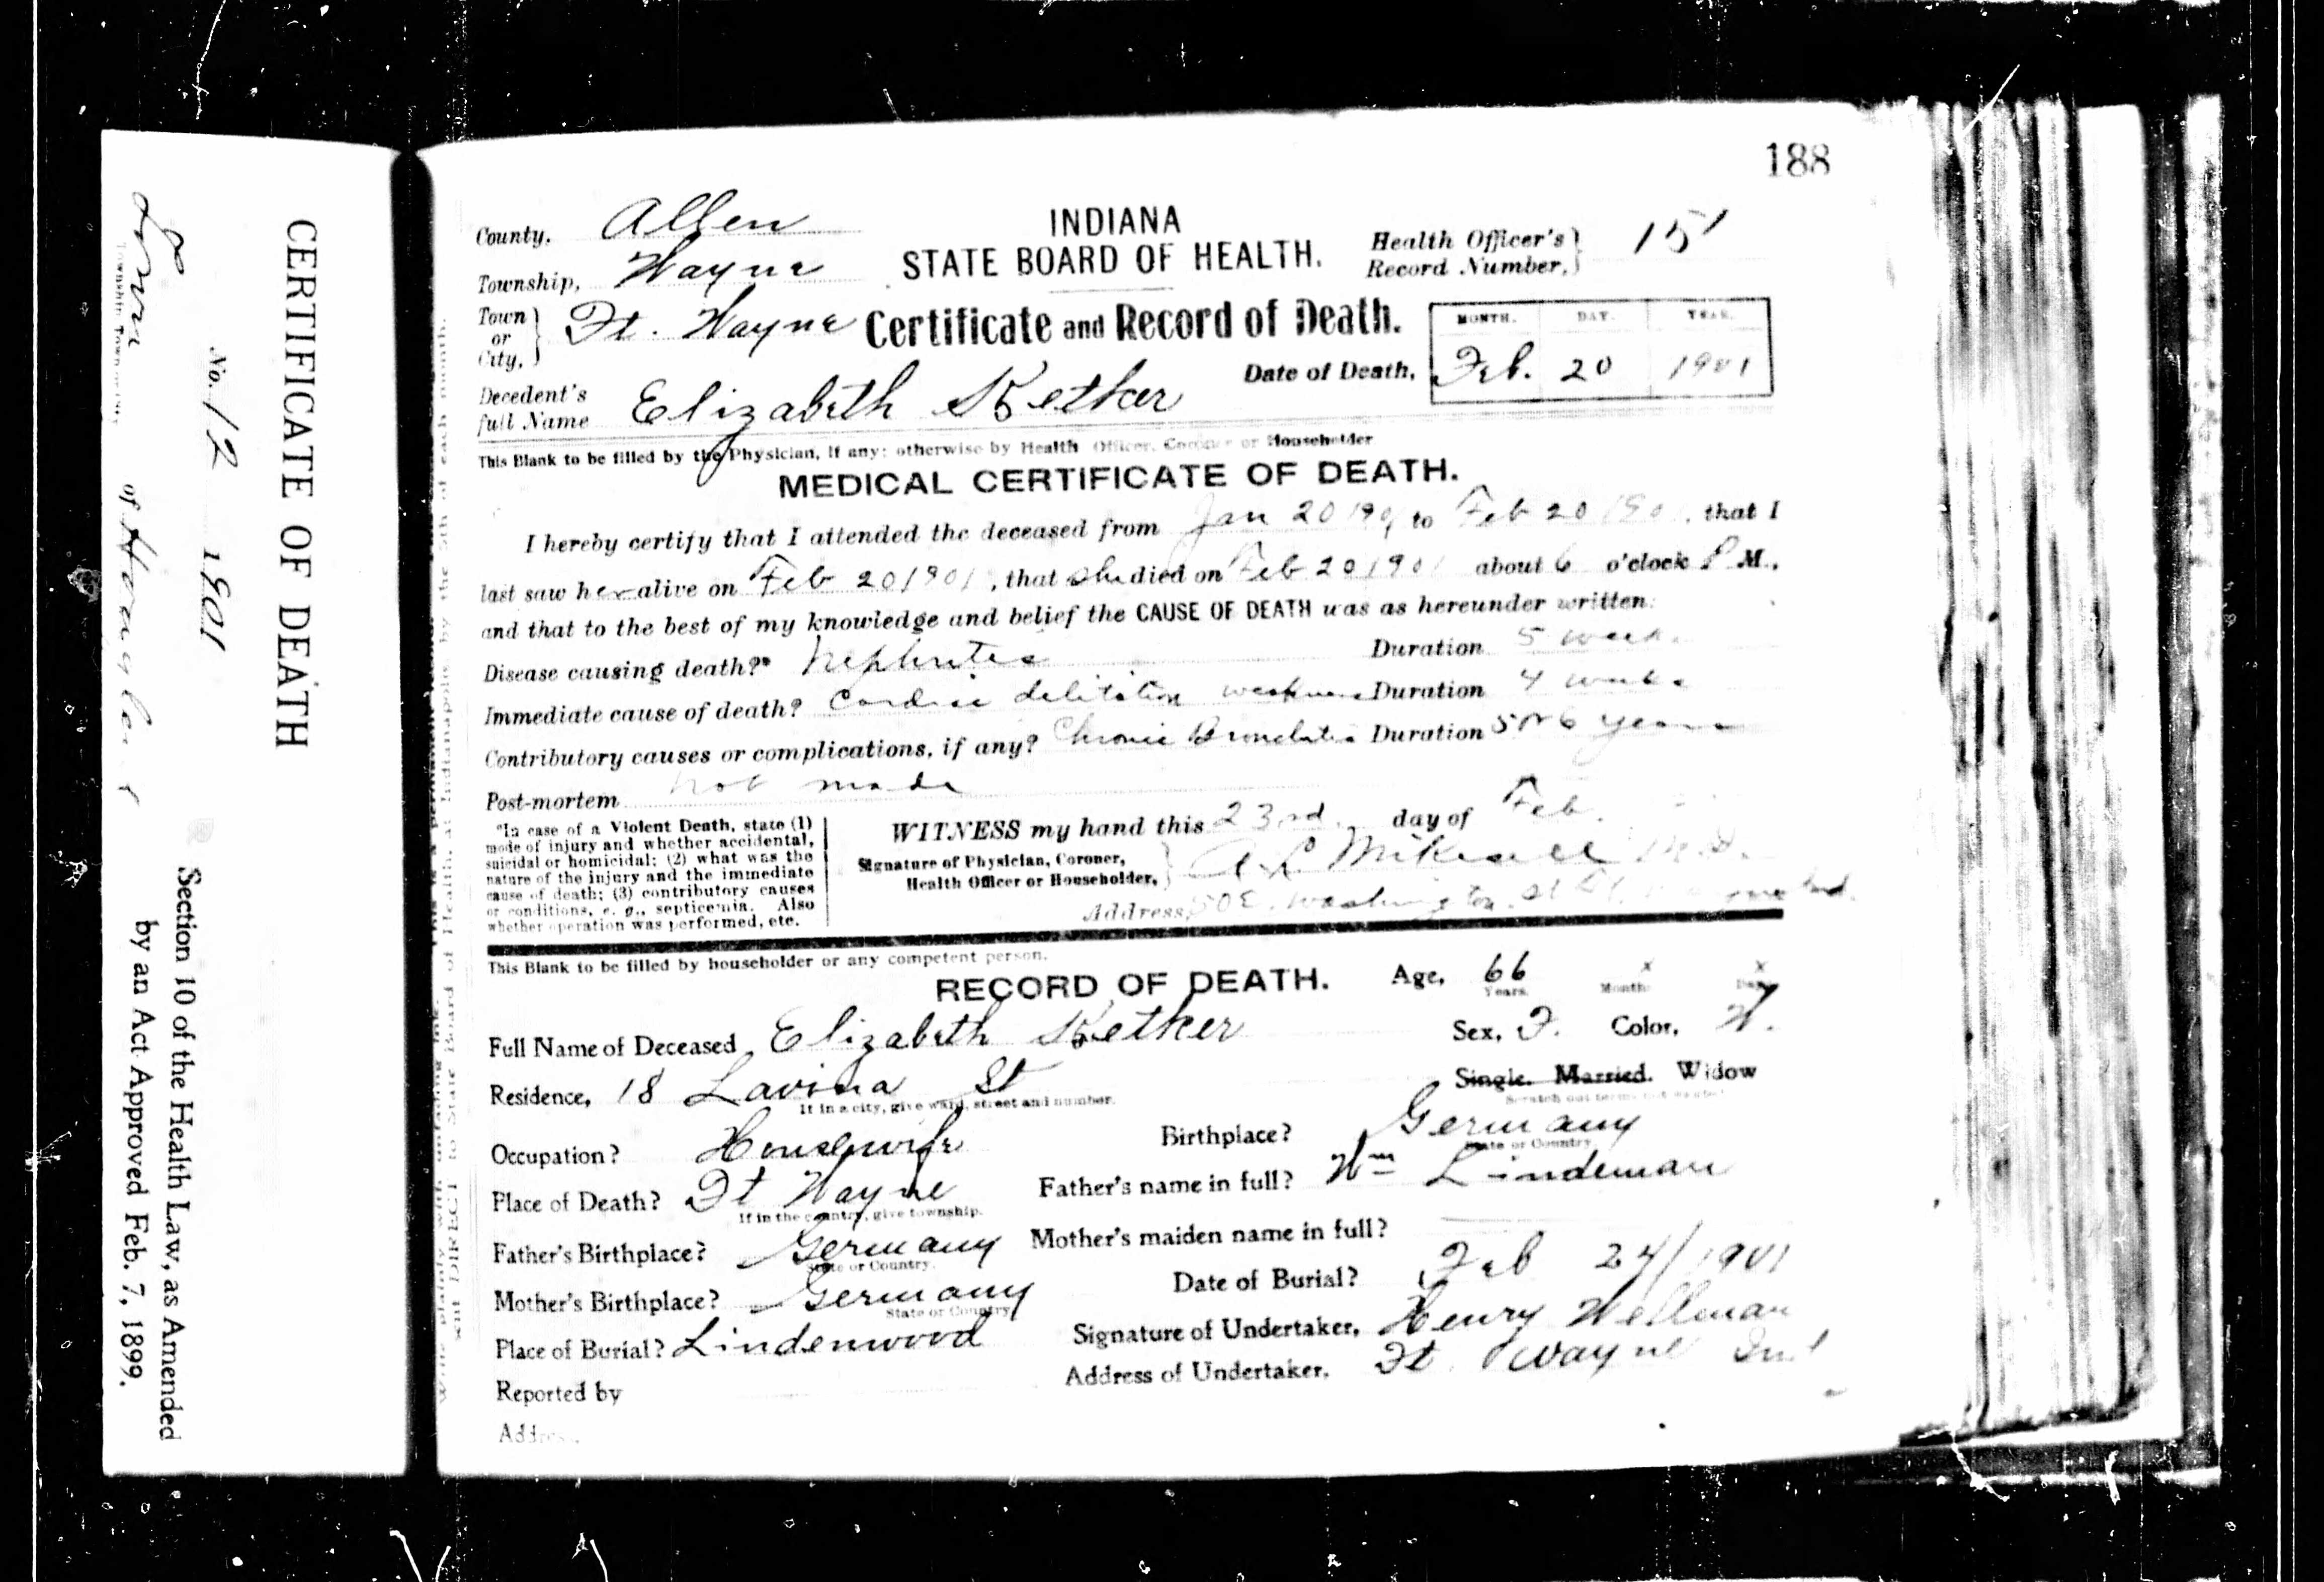 188
County, Allen
INDIANA
STATE BOARD OF HEALTH.
Health Officer's Record Number, 151
Township, Wayne
Town or City, Ft. Wayne
Certificate and Record of Death.
MONTH. DAY. YEAR.
Date of Death, Feb. 20 1901
Decedent's full Name Elizabeth Ketker
This Blank to be filled by the Physician, if any; otherwise by Health Officer, Coroner or Householder
MEDICAL CERTIFICATE OF DEATH.
I hereby certify that I attended the deceased from Jan 20 1901 to Feb 20 1901, that I
last saw her alive on Feb 20 1901, that she died on Feb 20 1901 about 6 o'clock P M.,
and that to the best of my knowledge and belief the CAUSE OF DEATH was as hereunder written:
Disease causing death?* Nephritis Duration 5 weeks
Immediate cause of death? Cardiac weakness Duration 4 weeks
Contributory causes or complications, if any? Chronic Bronchitis Duration 5 or 6 years
Post-mortem not made
*In case of a Violent Death, state (1)
mode of injury and whether accidental,
suicidal or homicidal; (2) what was the
nature of the injury and the immediate
cause of death; (3) contributory causes
or conditions, e. g., septicemia. Also
whether operation was performed, etc.
WITNESS my hand this 23rd day of Feb.
Signature of Physician, Coroner,
Health Officer or Householder, M.D.
Address, 50 E. Washington St Ft. Wayne Ind.
This Blank to be filled by householder or any competent person.
RECORD OF DEATH. Age, 66 Years. x Months x Days
Full Name of Deceased Elizabeth Ketker Sex, F. Color, W.
Residence, 18 Lavina St Single. Married. Widow
If in a city, give ward, street and number. Scratch out terms not wanted
Occupation? Housewife Birthplace? Germany
State or Country.
Place of Death? Ft Wayne Father's name in full? Wm Lindeman
If in the country, give township.
Father's Birthplace? Germany Mother's maiden name in full?
State or Country.
Mother's Birthplace? Germany Date of Burial? Feb 24/1901
State or Country
Place of Burial? Lindenwood Signature of Undertaker, Henry Wellman
Reported by Address of Undertaker, Ft Wayne Ind
Address
CERTIFICATE OF DEATH
No. 12 1901
of
Section 10 of the Health Law, as Amended
by an Act Approved Feb. 7, 1899.